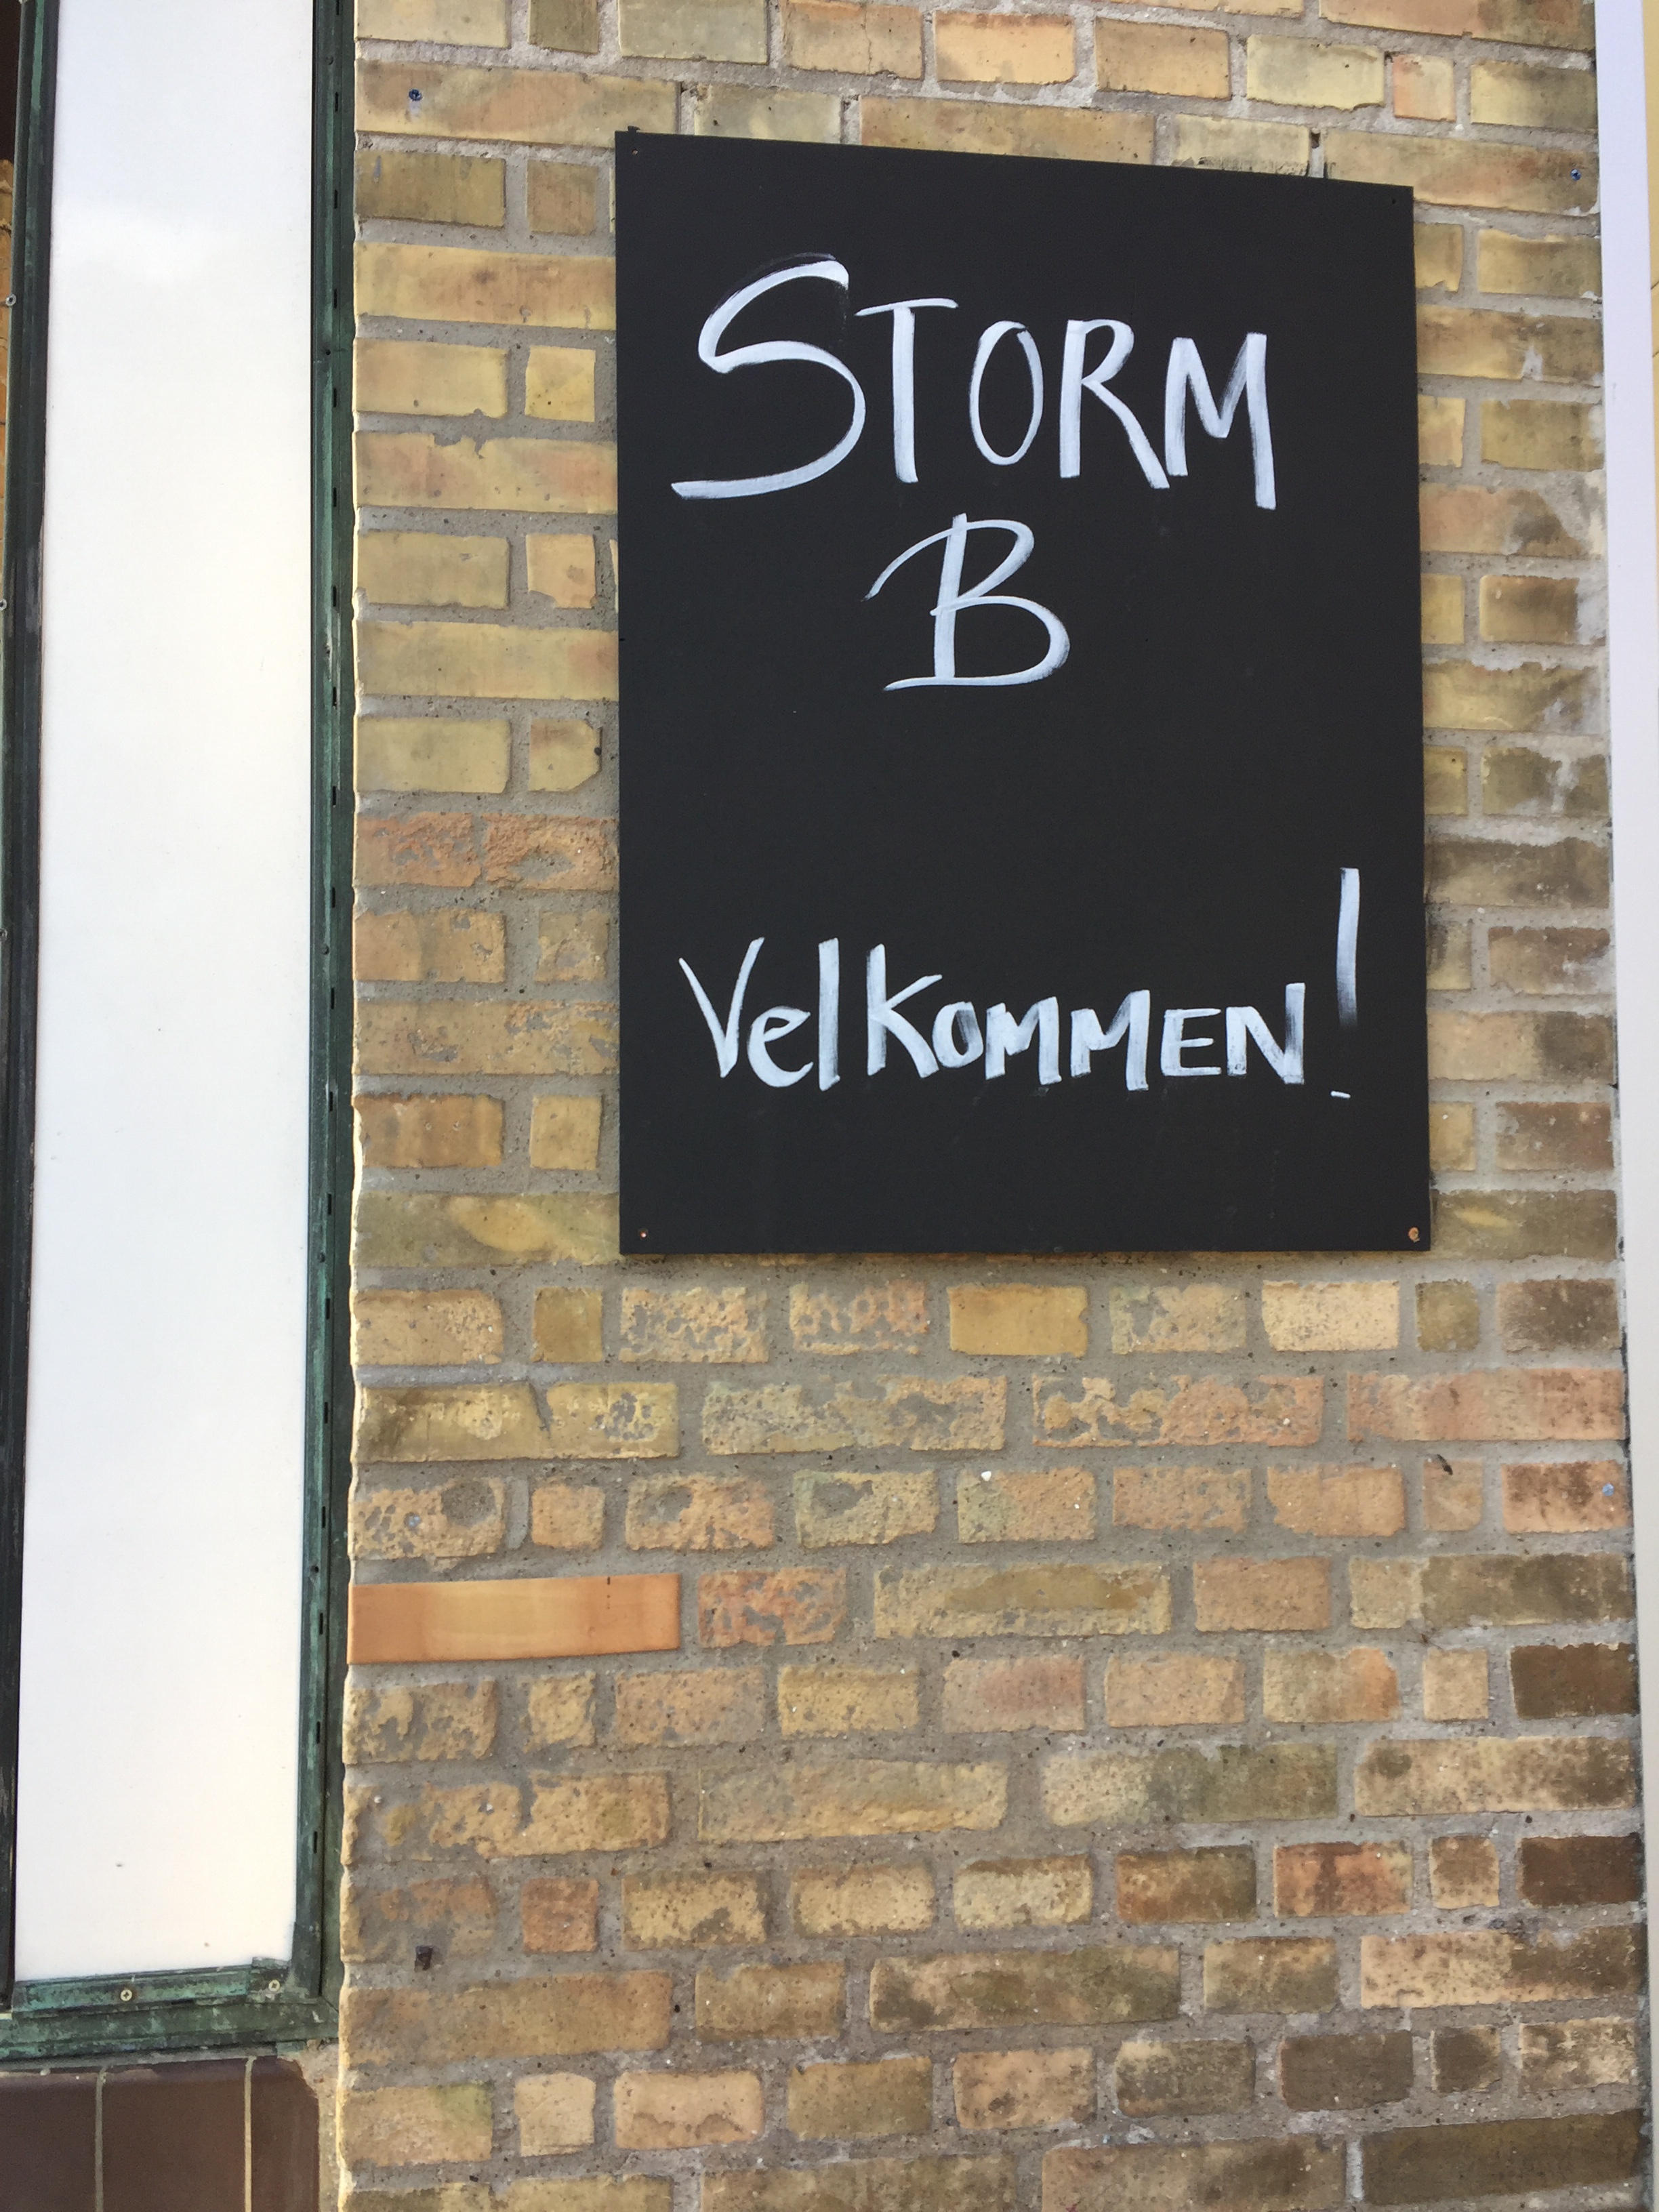 STORM
B
VelKOMMEN!